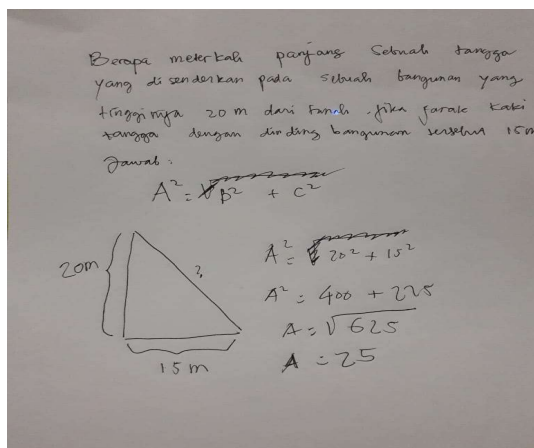 Berapa meterkah panjang Sebuah tangga
yang di senderkan pada sebuah bangunan yang
tingginya 20 m dari tanah. Jika jarak kaki
tangga dengan dinding bangunan tersebut 15m
Jawab :
A² = B² + C²
20m
?
15 m
A² = 20² + 15²
A² = 400 + 225
A = √625
A = 25